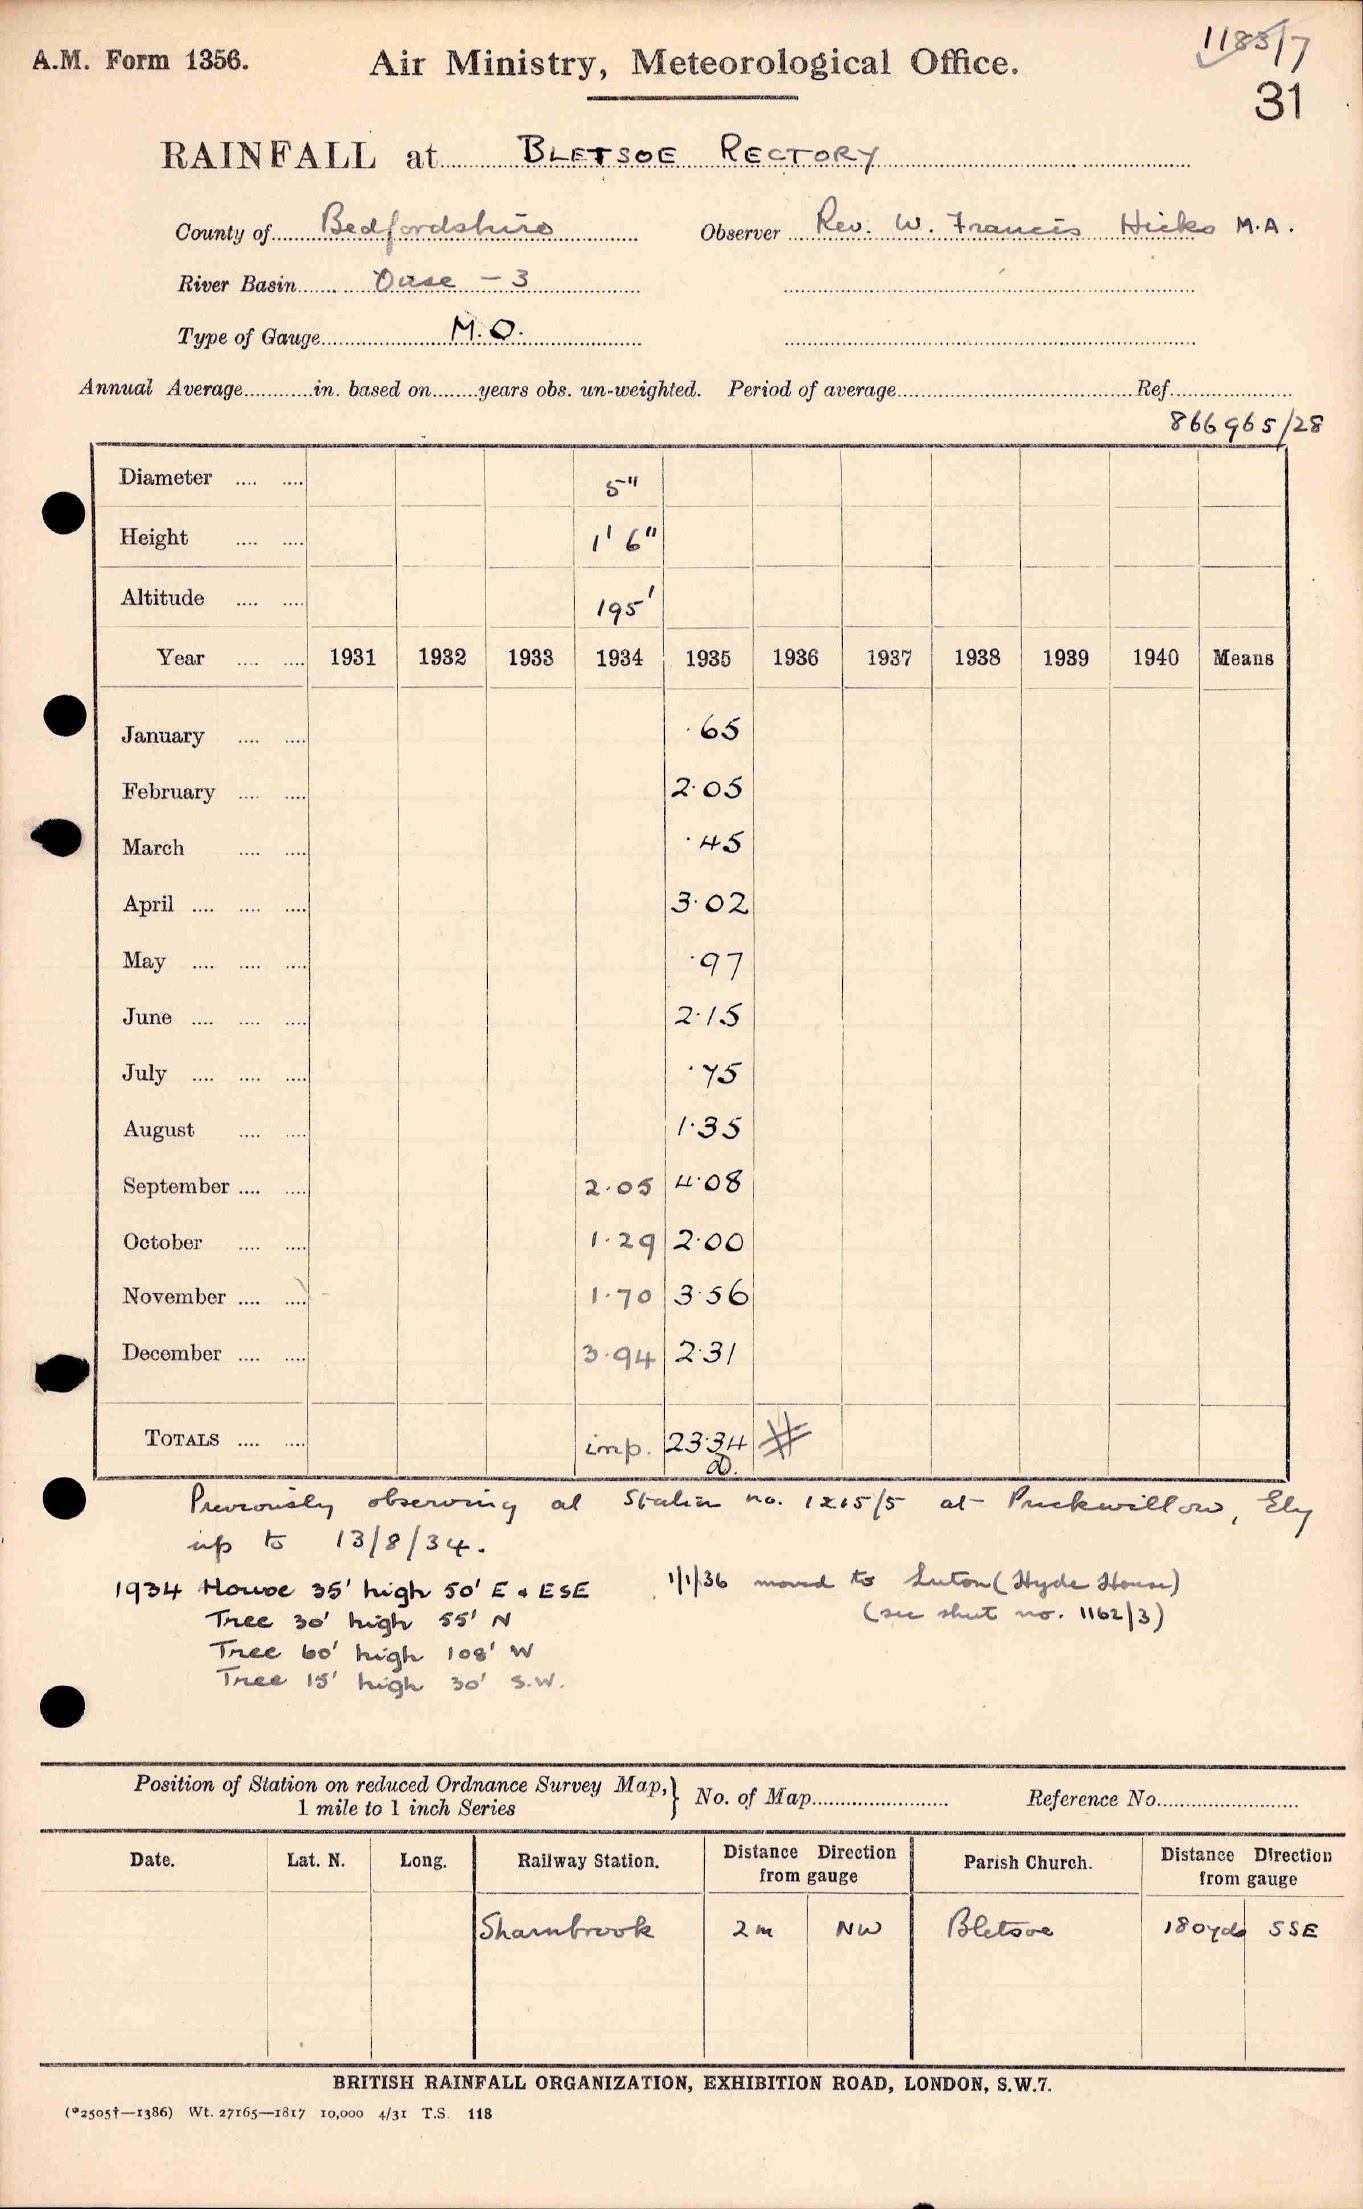 A.M. Form 1356.
Air Ministry, Meteorological Office.
1185/7
31
RAINFALL at BLETSOE RECTORY
County of Bedfordshire Observer Rev. W. Francis Hicks M.A.
River Basin Ouse - 3
Type of Gauge M.O.
Annual Average............in. based on........years obs. un-weighted. Period of average..............Ref..............
866965/28
Diameter .... .... 5"
Height .... .... 1' 6"
Altitude .... .... 195'
Year .... .... 1931 1932 1933 1934 1935 1936 1937 1938 1939 1940 Means
January .... .... ·65
February .... .... 2·05
March .... .... ·45
April .... .... .... 3·02
May .... .... .... ·97
June .... .... .... 2·15
July .... .... .... ·75
August .... .... 1·35
September .... .... 2·05 4·08
October .... .... 1·29 2·00
November .... .... 1·70 3·56
December .... .... 3·94 2·31
TOTALS .... .... imp. 23·34 #
Previously observing at Station no. 1215/5 at Prickwillow, Ely
up to 13/8/34.
1934 House 35' high 50' E & ESE
Tree 30' high 55' N
Tree 60' high 108' W
Tree 15' high 30' S.W.
1/1/36 moved to Luton (Hyde House)
(see sheet no. 1162/3)
Position of Station on reduced Ordnance Survey Map, 1 mile to 1 inch Series } No. of Map.............. Reference No..............
Date. Lat. N. Long. Railway Station. Distance Direction from gauge Parish Church. Distance Direction from gauge
Sharnbrook 2m NW Bletsoe 180yds SSE
BRITISH RAINFALL ORGANIZATION, EXHIBITION ROAD, LONDON, S.W.7.
(*2505†—1386) Wt. 27165—1817 10,000 4/31 T.S. 118